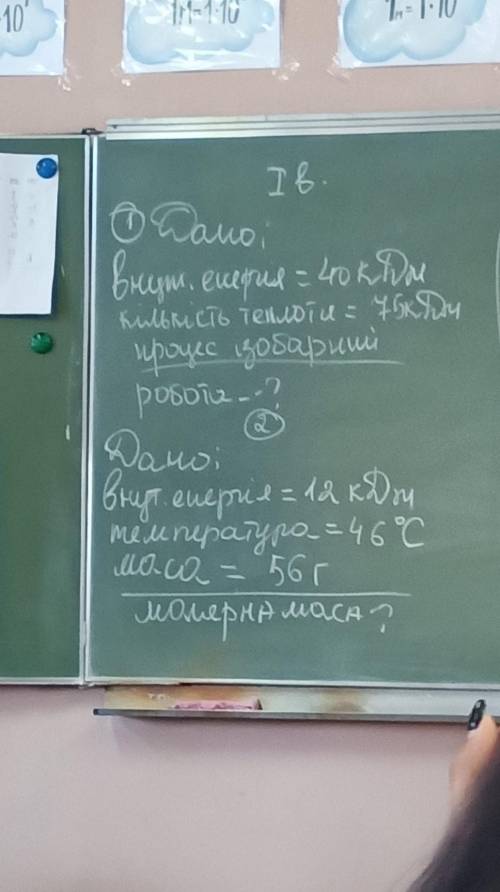 1м=1·10
I в.
① Дано;
внут. енергія = 40 кДж
кількість теплоти = 75кДж
процес ізобарний
робота - ?
②
Дано;
внут. енергія = 12 кДж
температура = 46°C
маса = 56 г
молярна маса?